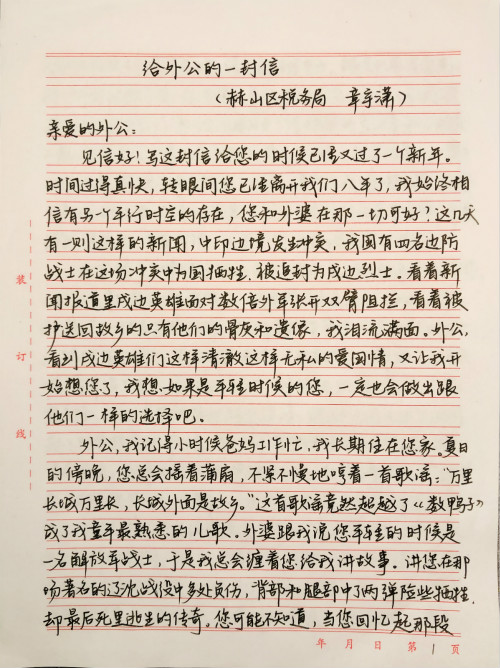 给外公的一封信
（赫山区税务局 章宇潇）
亲爱的外公：
见信好！写这封信给您的时候已经又过了一个新年。
时间过得真快，转眼间您已经离开我们八年了，我始终相
信有另一个平行时空的存在，您和外婆在那一切可好？这几天
有一则这样的新闻，中印边境发生冲突，我国有四名边防
战士在这场冲突中为国牺牲，被追封为戍边烈士。看着新
闻报道里戍边英雄面对数倍外军张开双臂阻拦，看着被
护送回故乡的只有他们的骨灰和遗像，我泪流满面。外公，
看到戍边英雄们这样清澈这样无私的爱国情，又让我开
始想您了，我想如果是年轻时候的您，一定也会做出跟
他们一样的选择吧。
外公，我记得小时候爸妈工作忙，我长期住在您家。夏日
的傍晚，您总会摇着蒲扇，不紧不慢地哼着一首歌谣：“万里
长城万里长，长城外面是故乡。”这首歌谣竟然超越了《数鸭子》
成了我童年最熟悉的儿歌。外婆跟我说您年轻的时候是
一名解放军战士，于是我总会缠着您给我讲故事。讲您在那
场著名的辽沈战役中多处负伤，背部和腿部中了两弹险些牺牲，
却最后死里逃生的传奇。您可能不知道，当您回忆起那段
装
订
线
年 月 日 第 1 页